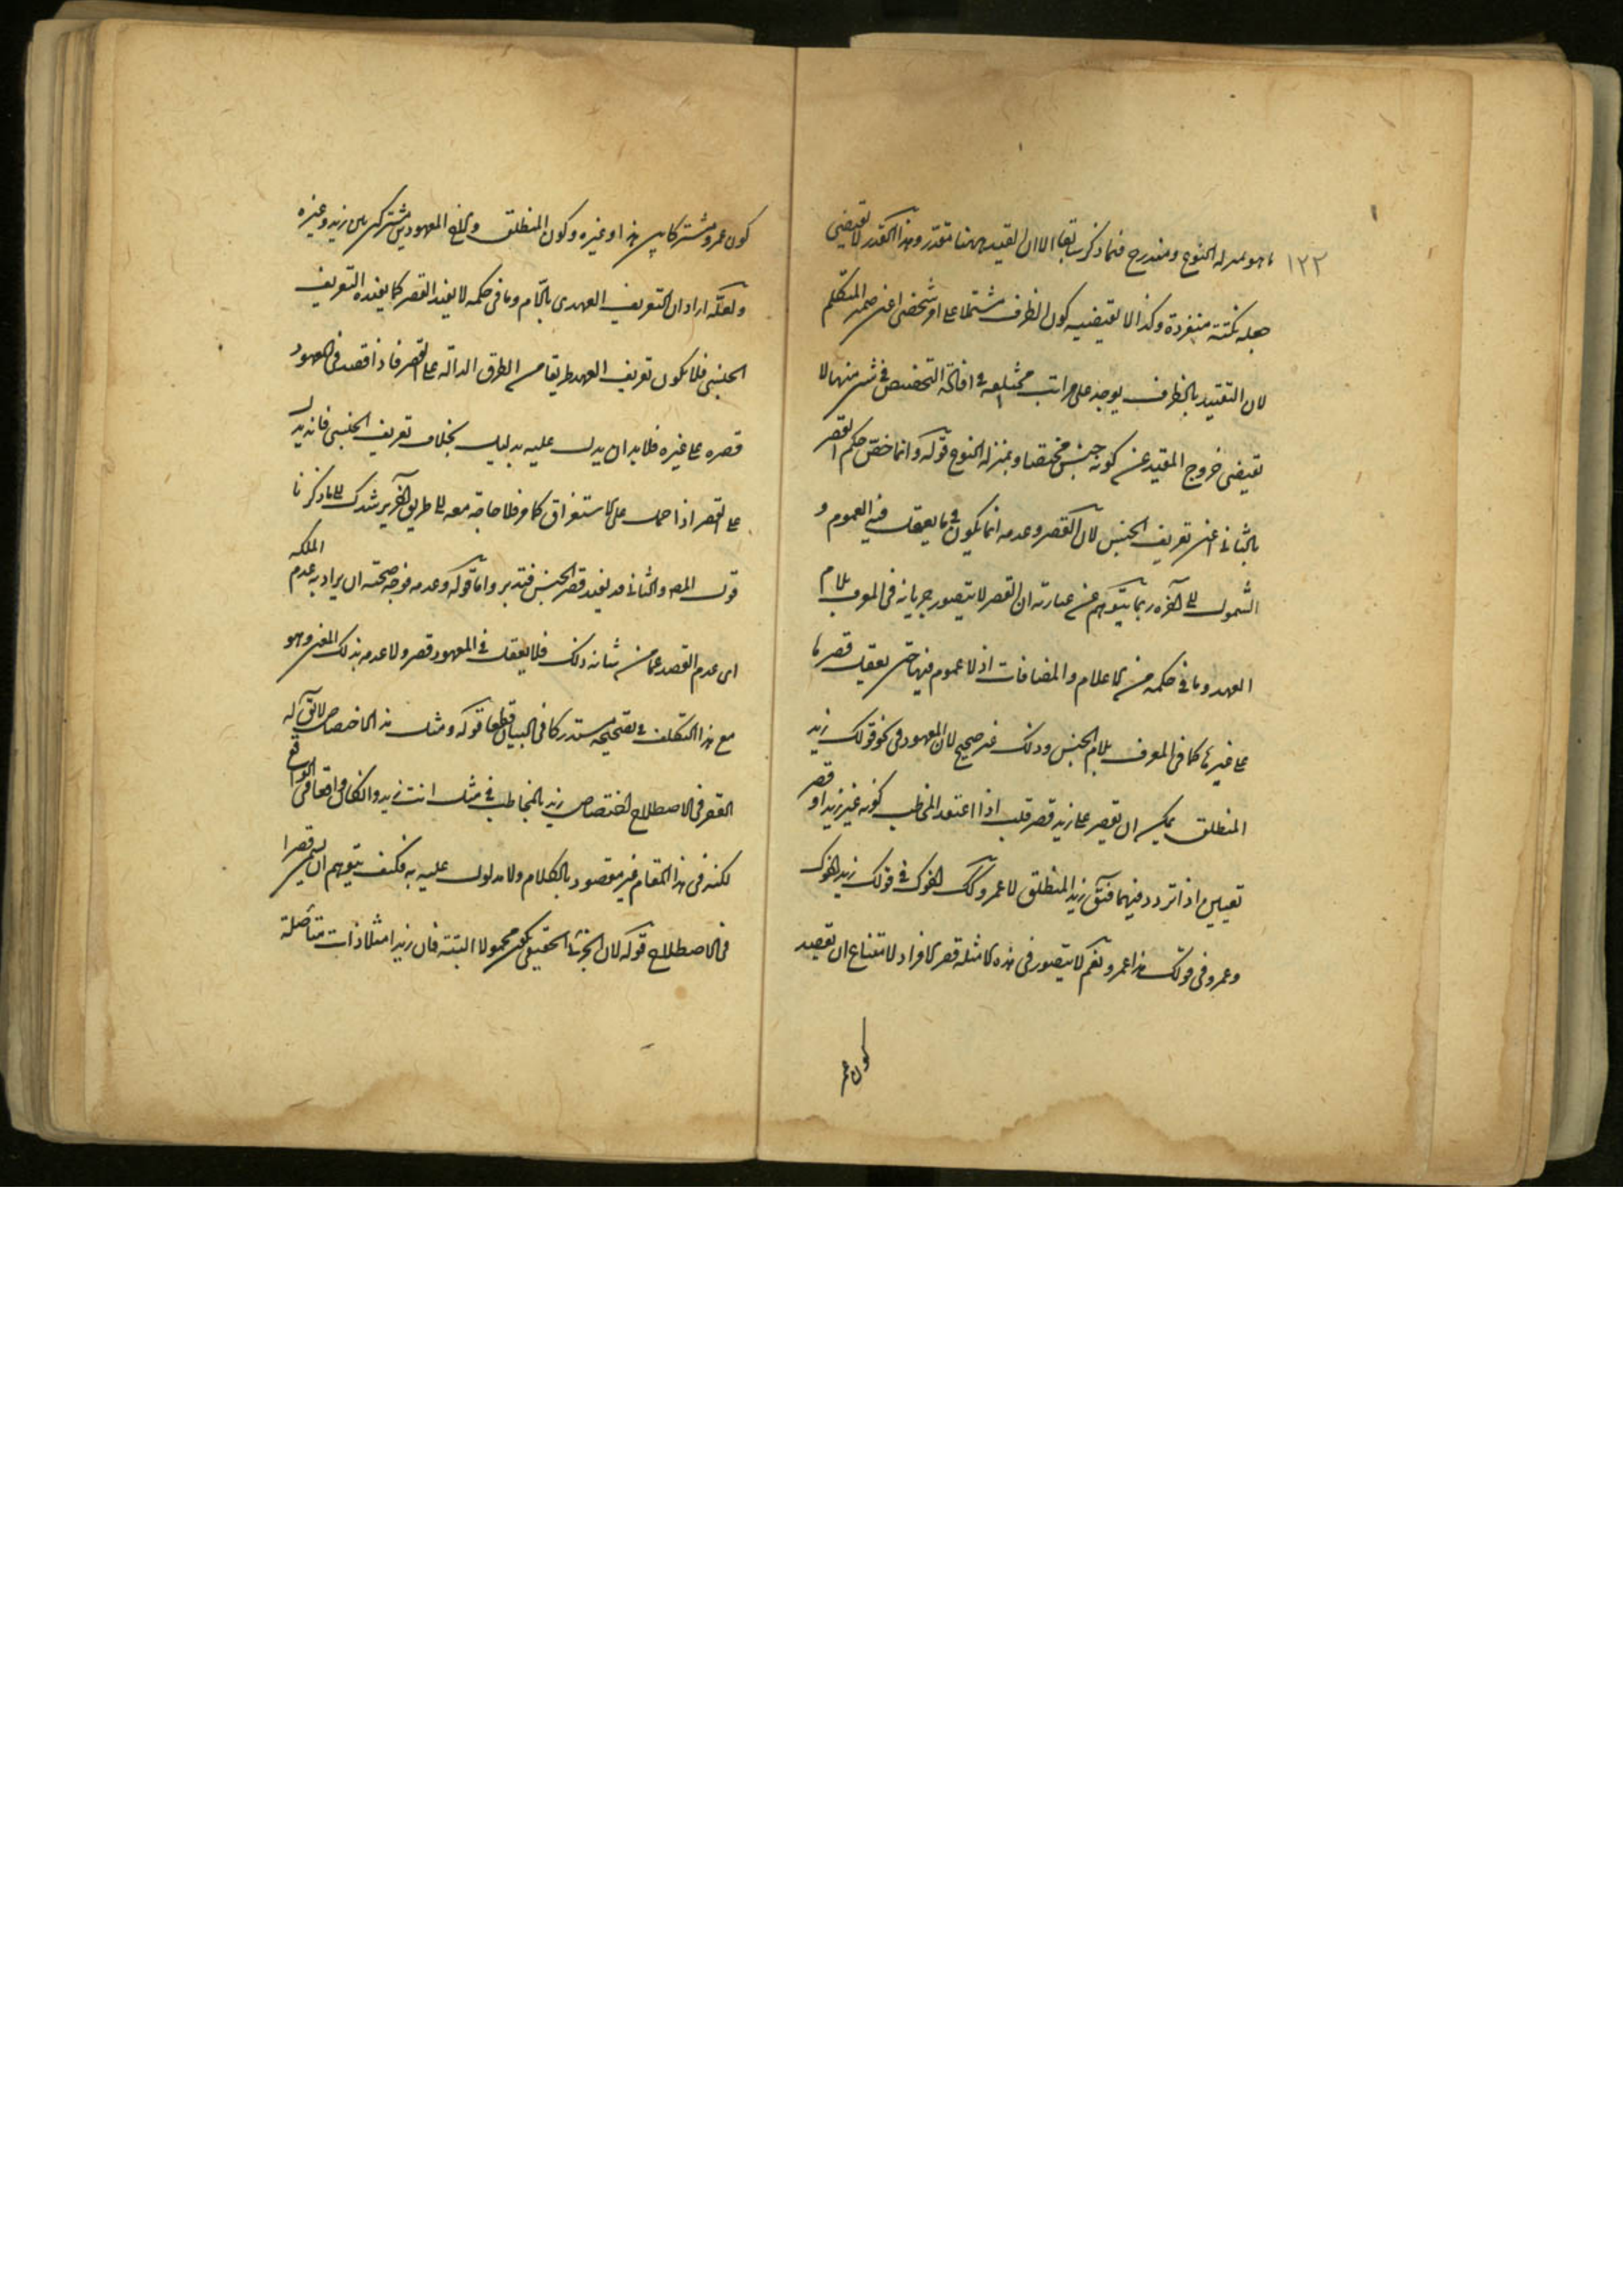 ١٢٢
ما هو بمنزلة النوع ومندرج فيما ذكر سابقا الا ان القيد ههنا مقدر وهذا القدر لا يقتضى
جعله نكتة منفردة وكذا لا يقتضيه كون الظرف مشتملا على امر شخصى اعنى ضمير المتكلم
لان التقييد بالظرف يوجد على مراتب مختلفة فى افادة التخصيص فى شىء منها لا
يقتضى خروج المقيد عن كونه جنسا مخصصا وبمنزلة النوع قوله وانما خص حكم القصر
بالثانى اعنى تعريف الجنس لان القصر وعدمه انما يكون فيما يعقل فيه العموم و
الشمول الى آخره ربما يتوهم من عبارته ان القصر لا يتصور جريانه فى المعرف بلام
العهد وما فى حكمه من الاعلام والمضافات اذ لا عموم فيها حتى يعقل قصرها
على غيرها كما فى المعرف بلام الجنس وذلك غير صحيح لان المعهود فى نحو قولك زيد
المنطلق يمكن ان يقصر على زيد قصر قلب اذا اعتقد المخاطب كونه غير زيد او قصر
تعيين اذا تردد فيهما فيقال زيد المنطلق لا عمرو وكذلك اخوك فى قولك زيد اخوك
وعمرو فى قولك هذا عمرو نعم لا يتصور فى هذه الامثلة قصر الافراد لامتناع ان يقصد
كون عمر
كون عمرو مشتركا بين هذا وغيره وكون المنطلق والاخ المعهودين مشتركين بين زيد وغيره
ولعله اراد ان التعريف العهدى باللام وما فى حكمه لا يفيد القصر كما يفيده التعريف
الجنسى فلا يكون تعريف العهد طريقا من الطرق الدالة على القصر فاذا قصد فى المعهود
قصره على غيره فلا بد ان يدل عليه بدليل بخلاف تعريف الجنسى فانه يدل
على القصر اذا حمل على الاستغراق كما مر فلا حاجة معه الى طريق آخر يرشدك الى ما ذكرنا
قول المص والثانى قد يفيد قصر الجنس فتدبر واما قوله وعدمه فوجه صحته ان يراد به عدم الملكة
اى عدم القصد عما من شانه ذلك فلا يعقل فى المعهود قصر ولا عدمه بذلك المعنى وهو
مع هذا التكلف فى تصحيحه مستدرك فى البيان قطعا قوله ومثل هذا الاختصاص لا يقال له
القصر فى الاصطلاح اختصاص زيد بالمخاطب فى مثل انت زيد وان كان واقعا فى الواقع
لكنه فى هذا المقام غير مقصود بالكلام ولا مدلول عليه به فكيف يتوهم ان يسمى قصرا
فى الاصطلاح قوله لان الجزئى الحقيقى لا يكون محمولا البتة فان زيدا مثلا ذات متأصلة